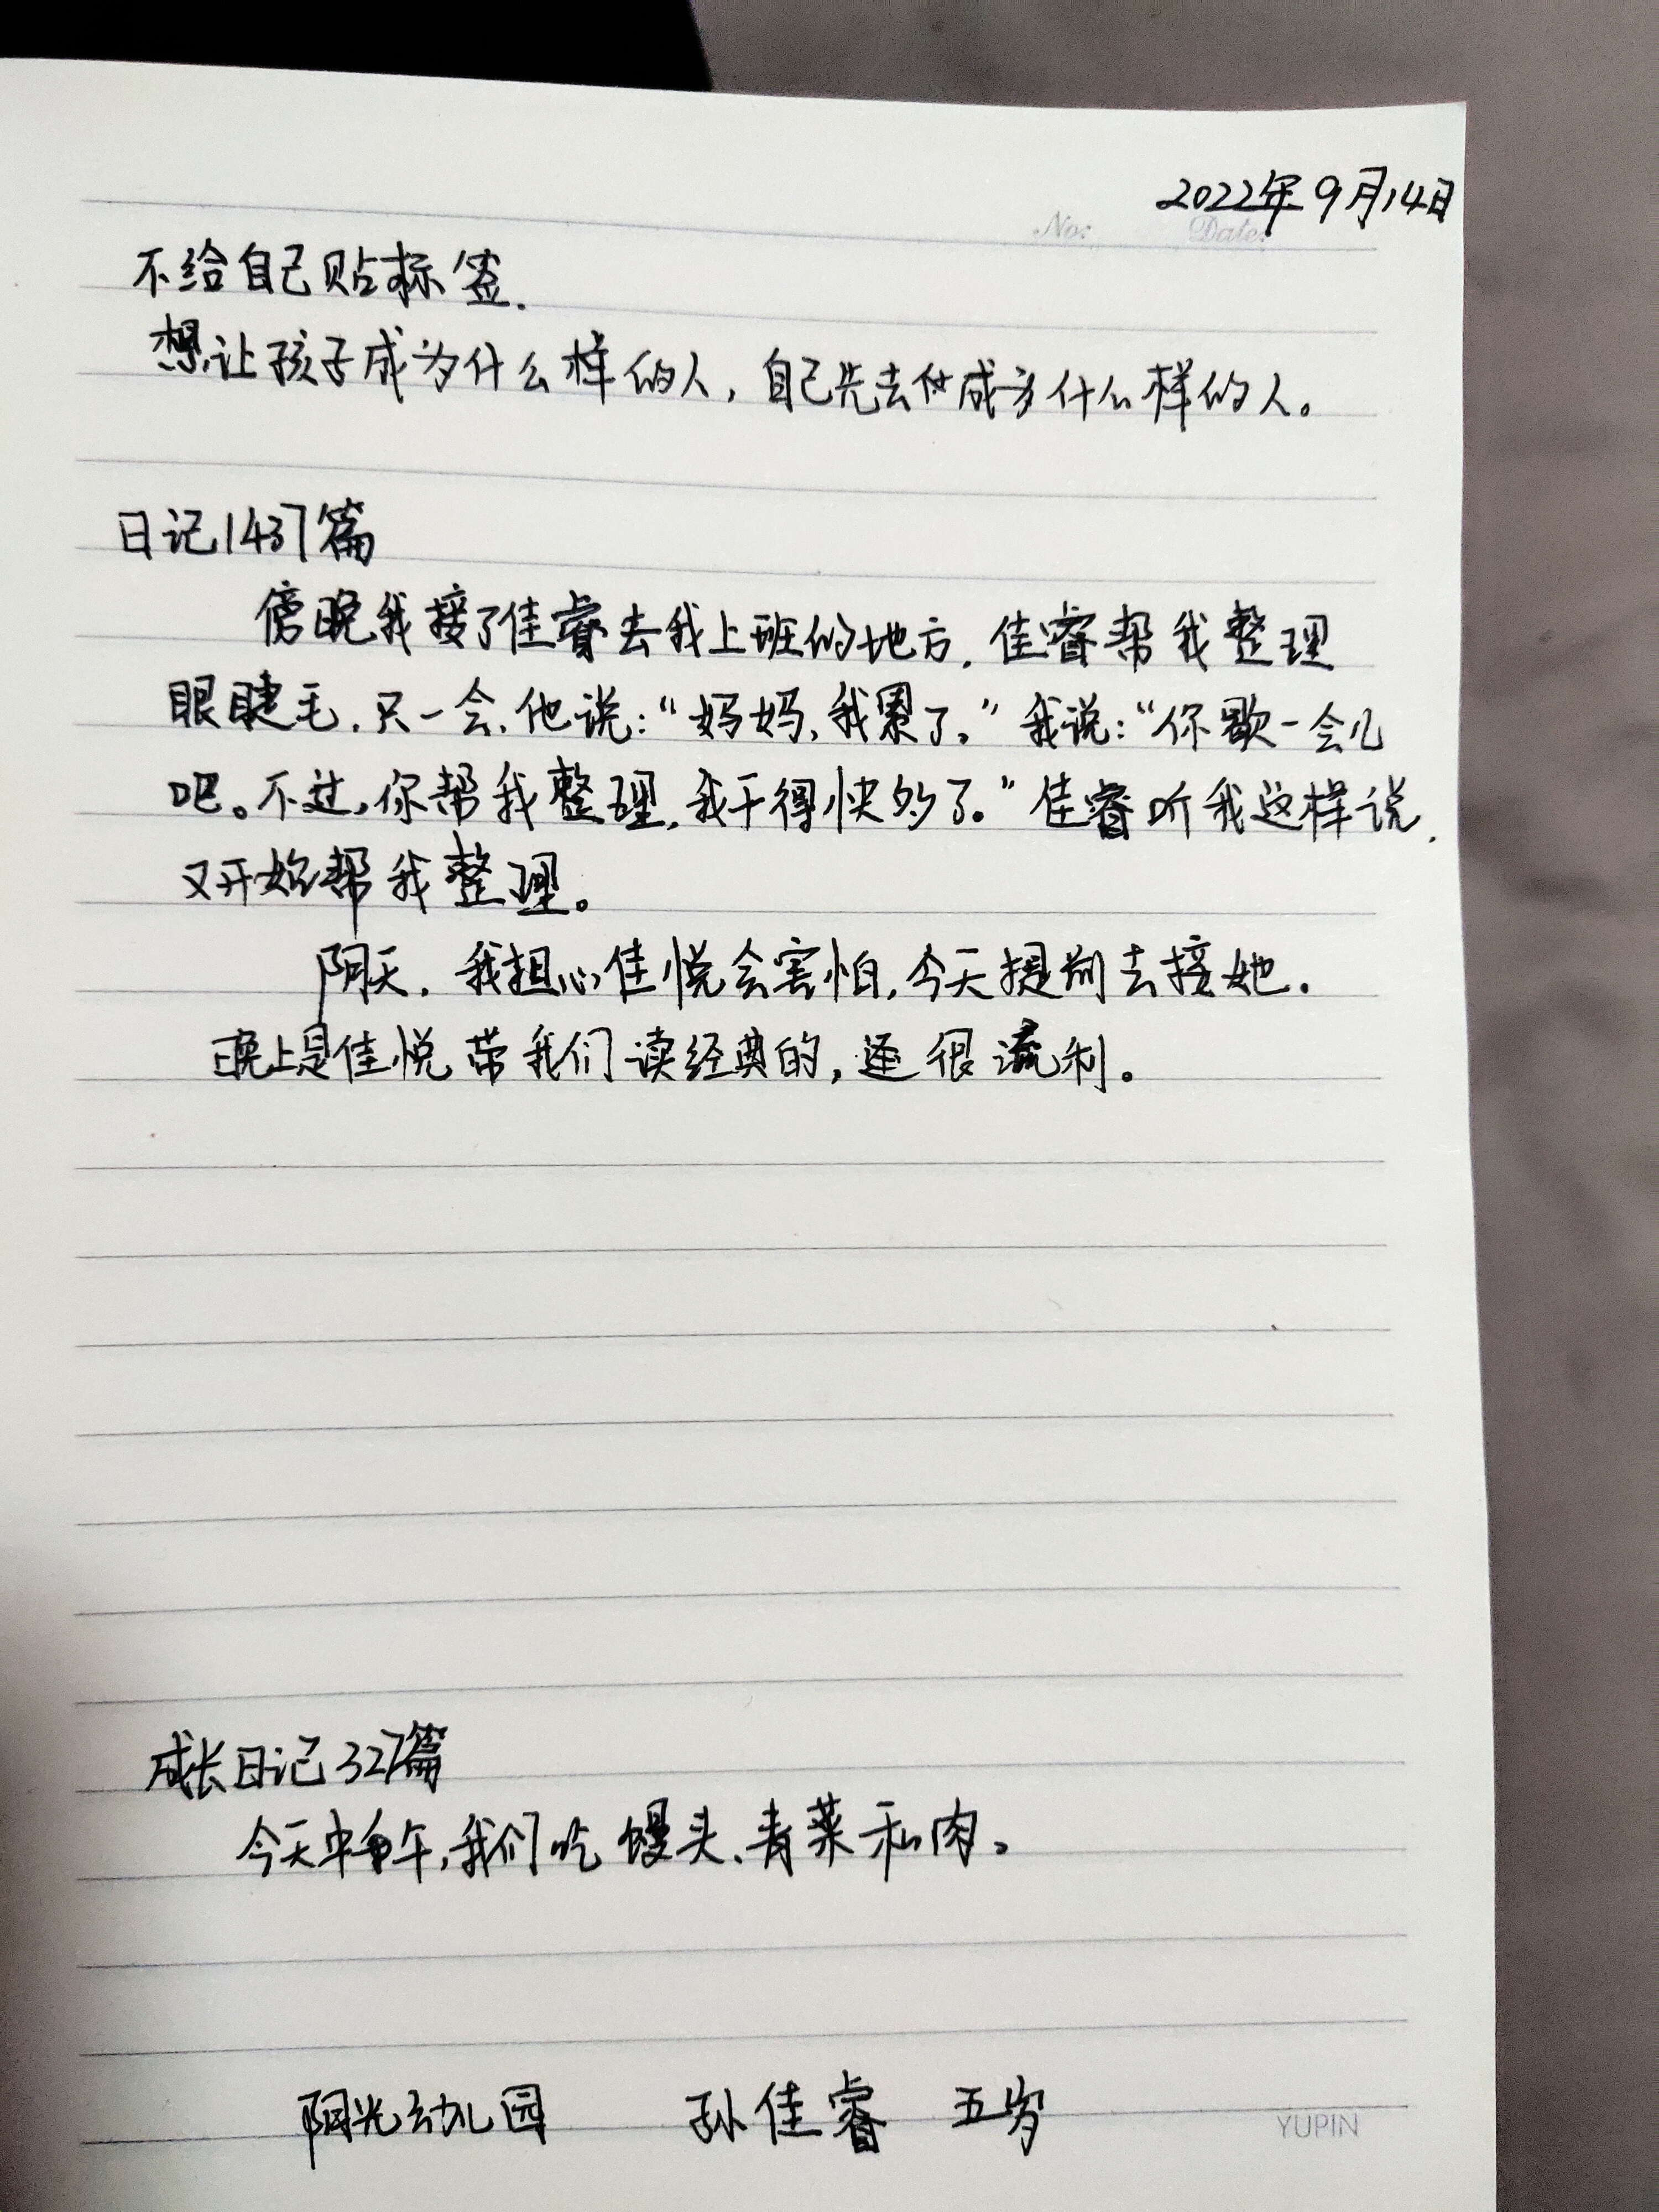 2022年9月14日
No:    Date:
不给自己贴标签.
想让孩子成为什么样的人，自己先去成为什么样的人。
日记1437篇
傍晚我接了佳睿去我上班的地方.佳睿帮我整理
眼睫毛.只一会.他说：“妈妈,我累了。”我说：“你歇一会儿
吧。不过,你帮我整理,我干得快多了。”佳睿听我这样说.
又开始帮我整理。
阴天.我担心佳悦会害怕,今天提前去接她.
晚上是佳悦带我们读经典的,还很流利。
成长日记327篇
今天中午,我们吃馒头、青菜和肉。
阳光幼儿园 孙佳睿 五岁
YUPIN